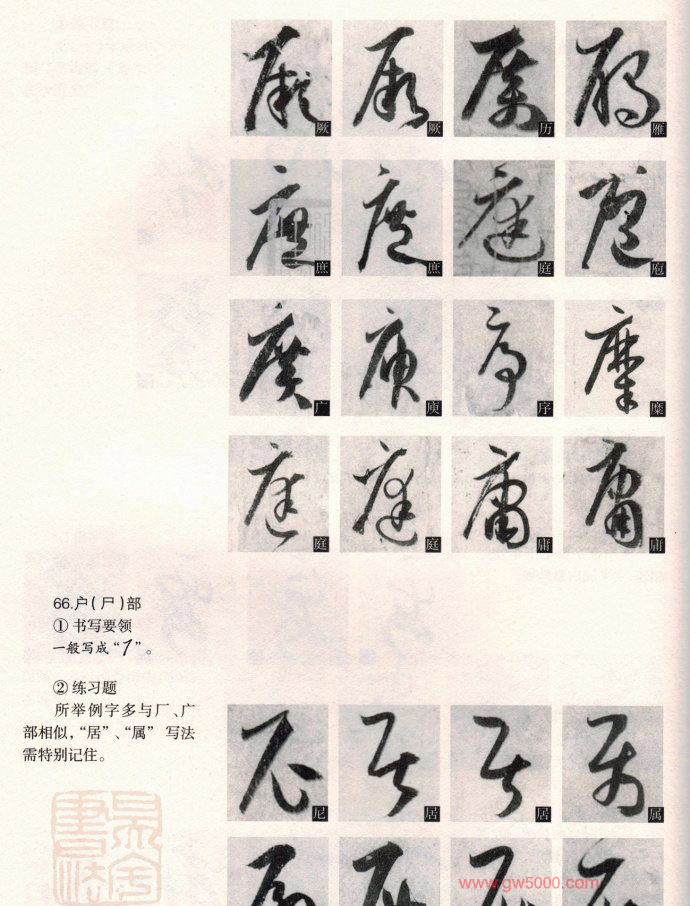 厥 厥 历 雁
庶 庶 庭 庖
广 庾 序 糜
庭 庭 庸 庸
66.户(尸)部
① 书写要领
一般写成“ ”。
② 练习题
所举例字多与厂、广
部相似,“居”、“属” 写法
需特别记住。
尼 居 居 属
www.gw5000.com